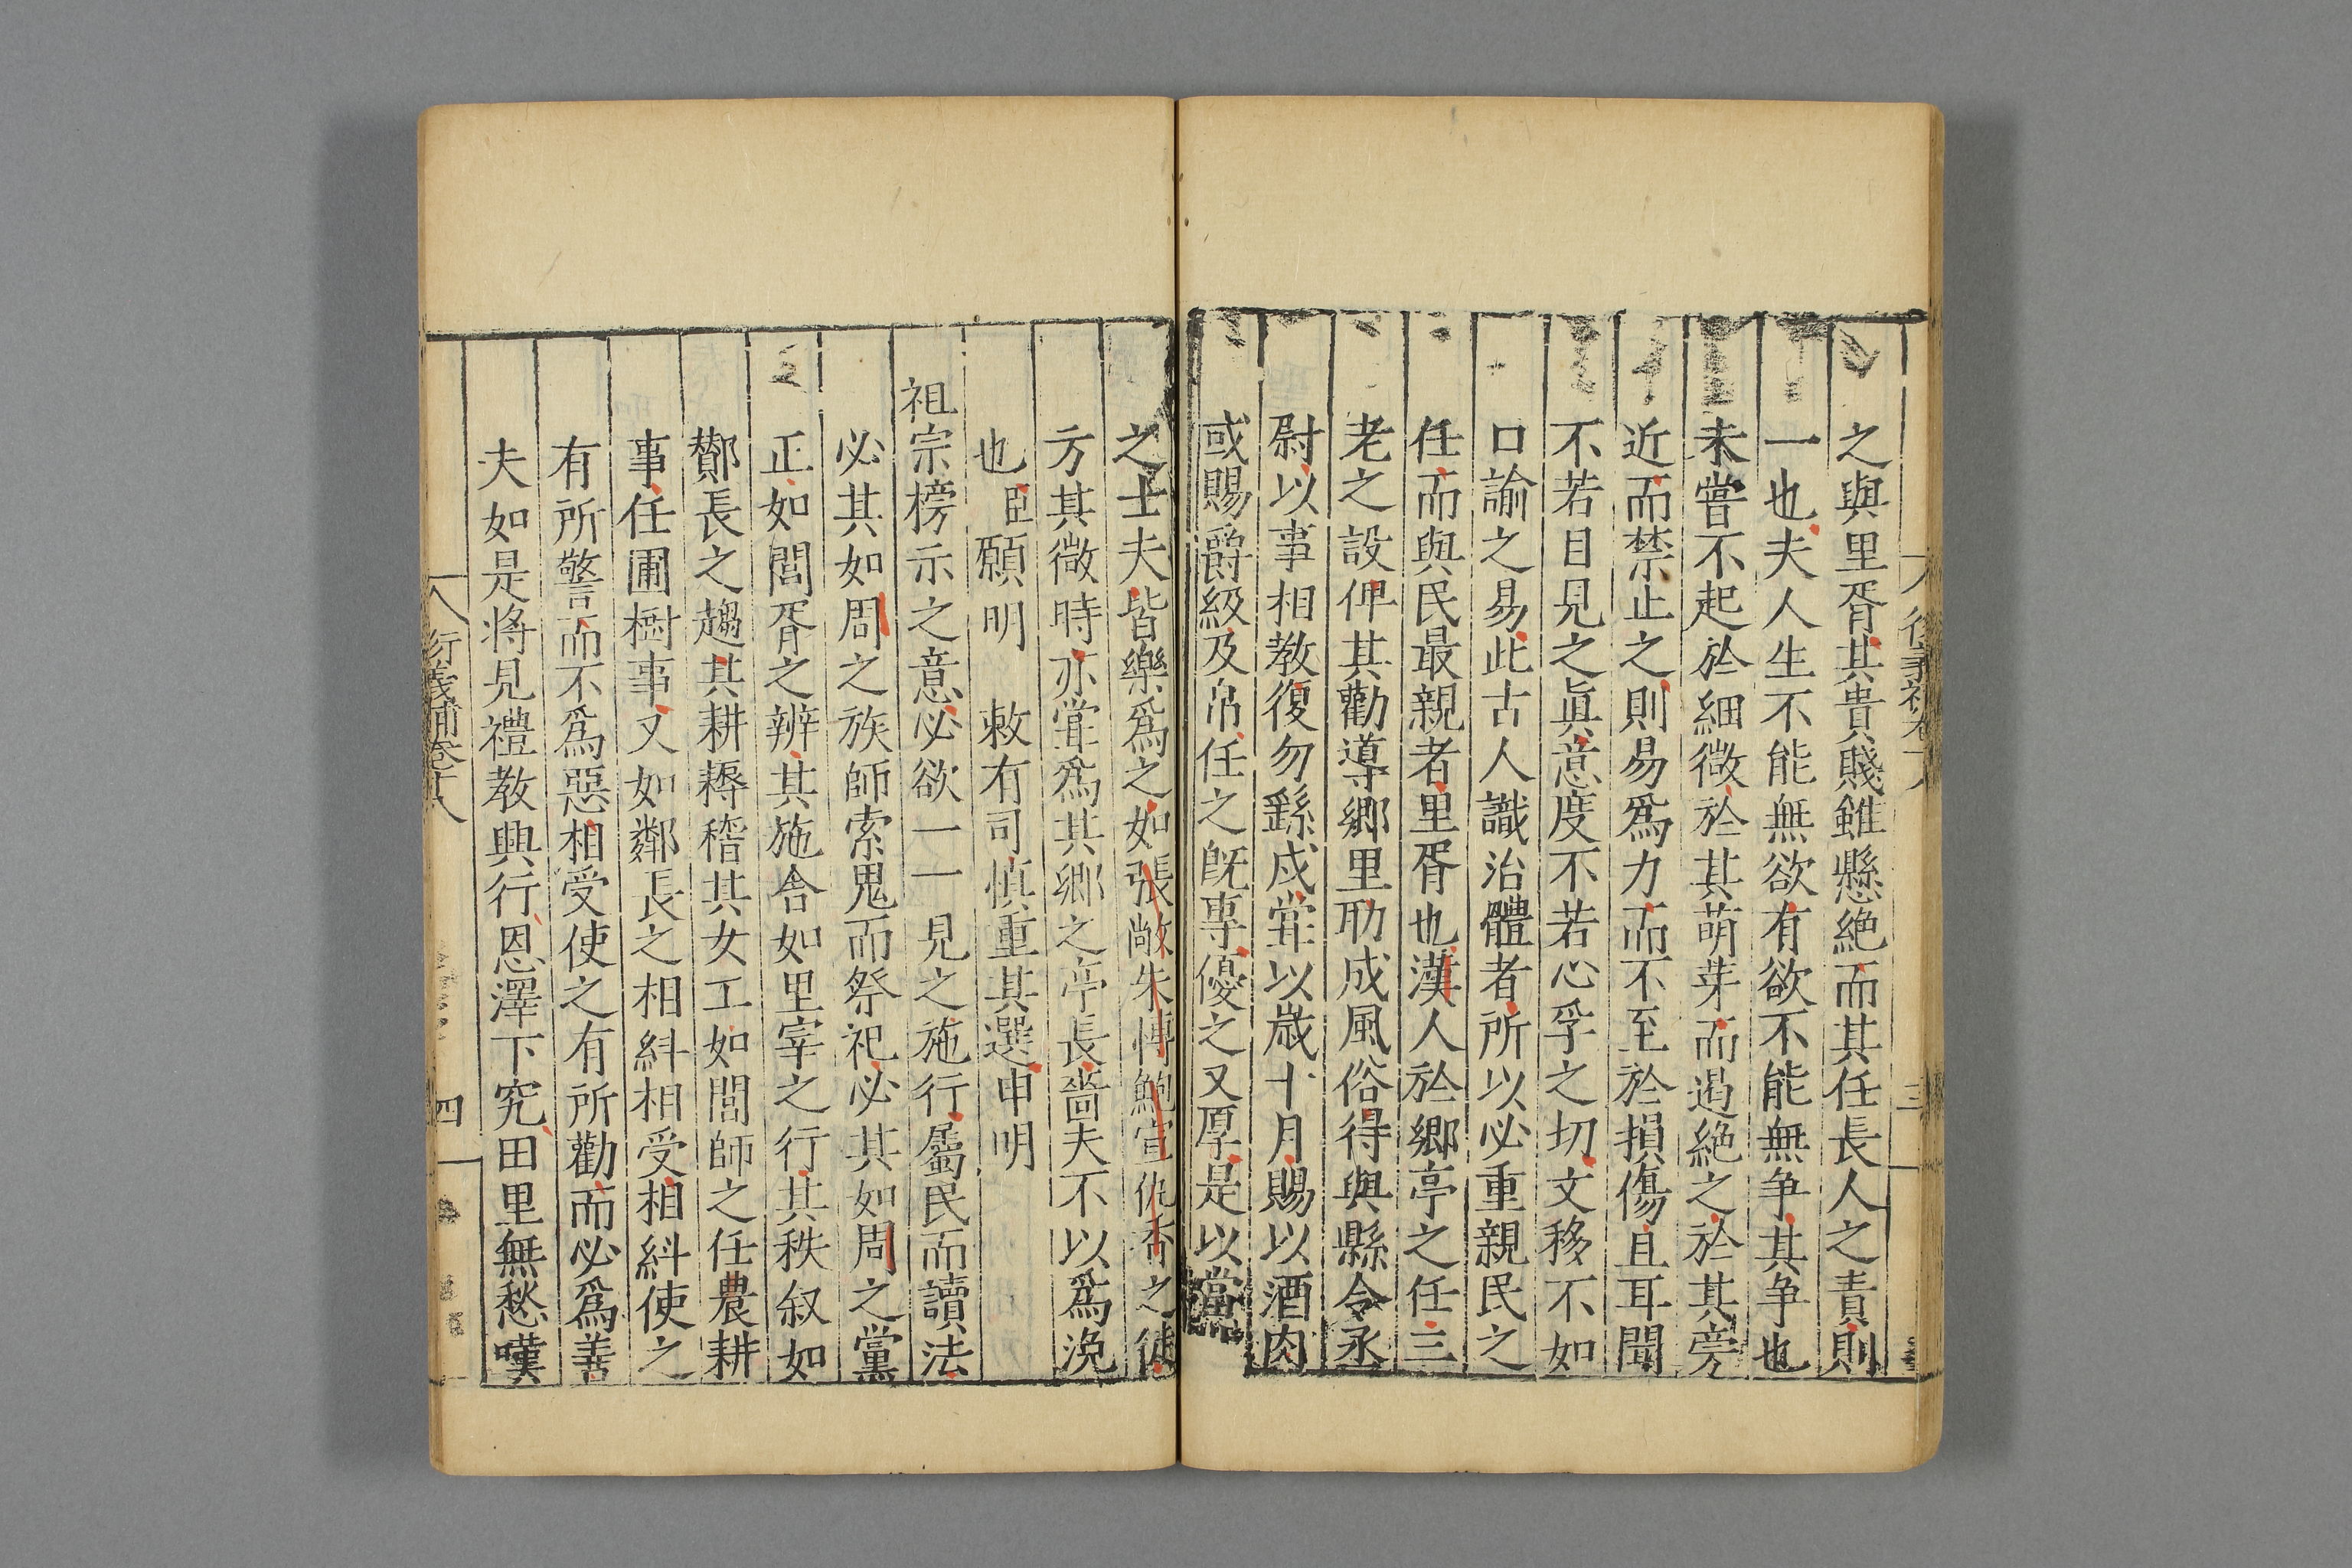 之與里胥其貴賤雖懸絶而其任長人之責則
一也夫人生不能無欲有欲不能無争其争也
未嘗不起於細微於其萌芽而遏絶之於其旁
近而禁止之則易爲力而不至於損傷且耳聞
不若目見之眞意度不若心孚之切文移不如
口諭之易此古人識治體者所以必重親民之
任而與民最親者里胥也漢人於鄉亭之任三
老之設俾其勸導鄉里助成風俗得與縣令丞
尉以事相教復勿繇戍甞以歲十月賜以酒肉
或賜爵級及帛任之旣專優之又厚是以當時
之士夫皆樂爲之如張敞朱博鮑宣仇香之徒
方其微時亦甞爲其鄉之亭長嗇夫不以爲浼
也臣願明 敕有司愼重其選申明
祖宗榜示之意必欲一一見之施行屬民而讀法
必其如周之族師索鬼而祭祀必其如周之黨
正如閭胥之辨其施舍如里宰之行其秩叙如
酇長之趨其耕耨稽其女工如閭師之任農耕
事任圃樹事又如鄰長之相糾相受相糾使之
有所警而不爲惡相受使之有所勸而必爲善
夫如是將見禮教興行恩澤下究田里無愁嘆
衍義補卷十八
四